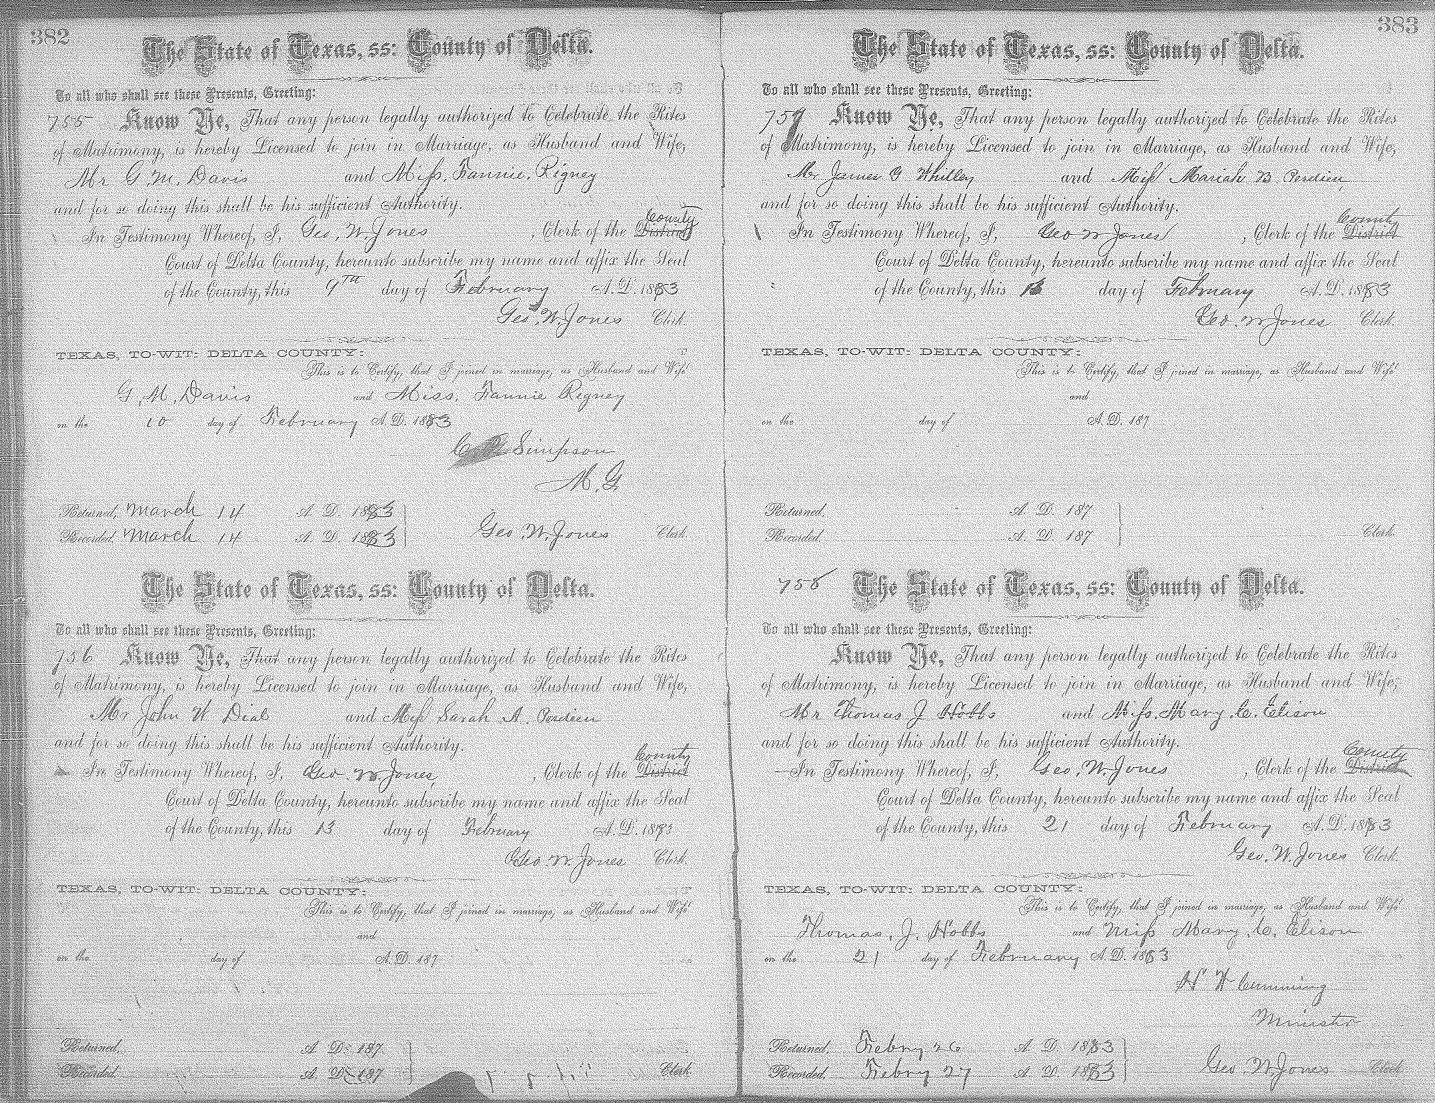 382
The State of Texas, ss: County of Delta.
To all who shall see these Presents, Greeting:
755 Know Ye, That any person legally authorized to Celebrate the Rites
of Matrimony, is hereby Licensed to join in Marriage, as Husband and Wife,
Mr G. M. Davis and Miss. Fannie. Rigney
and for so doing this shall be his sufficient Authority.
County
In Testimony Whereof, I, Geo. W. Jones, Clerk of the District
Court of Delta County, hereunto subscribe my name and affix the Seal
of the County, this 9th day of February A.D. 1883
Geo. W. Jones Clerk.
TEXAS, TO-WIT: DELTA COUNTY:
This is to Certify, that I joined in marriage, as Husband and Wife
G. M. Davis and Miss. Fannie Rigney
on the 10 day of February A.D. 1883
Simpson
M. G.
Returned, March 14 A. D. 1883
Recorded, March 14 A. D. 1883 Geo. W. Jones Clerk.
The State of Texas, ss: County of Delta.
To all who shall see these Presents, Greeting:
756 Know Ye, That any person legally authorized to Celebrate the Rites
of Matrimony, is hereby Licensed to join in Marriage, as Husband and Wife,
Mr John W Dial and Miss Sarah A. Perdieu
and for so doing this shall be his sufficient Authority.
County
In Testimony Whereof, I, Geo. W. Jones, Clerk of the District
Court of Delta County, hereunto subscribe my name and affix the Seal
of the County, this 13 day of February A.D. 1883
Geo W. Jones Clerk.
TEXAS, TO-WIT: DELTA COUNTY:
This is to Certify, that I joined in marriage, as Husband and Wife
and
on the day of A.D. 187
Returned, A. D. 187
Recorded A. D. 187 Clerk.
383
The State of Texas, ss: County of Delta.
To all who shall see these Presents, Greeting:
757 Know Ye, That any person legally authorized to Celebrate the Rites
of Matrimony, is hereby Licensed to join in Marriage, as Husband and Wife,
Mr James G Whitley and Miss Mariah B Perdieu
and for so doing this shall be his sufficient Authority.
County
In Testimony Whereof, I, Geo W Jones, Clerk of the District
Court of Delta County, hereunto subscribe my name and affix the Seal
of the County, this day of February A.D. 1883
Geo. W Jones Clerk.
TEXAS, TO-WIT: DELTA COUNTY:
This is to Certify, that I joined in marriage, as Husband and Wife
and
on the day of A.D. 187
Returned, A. D. 187
Recorded, A. D. 187 Clerk.
758 The State of Texas, ss: County of Delta.
To all who shall see these Presents, Greeting:
Know Ye, That any person legally authorized to Celebrate the Rites
of Matrimony, is hereby Licensed to join in Marriage, as Husband and Wife,
Mr Thomas J Hobbs and Miss. Mary. C. Elison
and for so doing this shall be his sufficient Authority.
County
In Testimony Whereof, I, Geo. W. Jones, Clerk of the District
Court of Delta County, hereunto subscribe my name and affix the Seal
of the County, this 21 day of February A.D. 1883
Geo. W. Jones Clerk.
TEXAS, TO-WIT: DELTA COUNTY:
This is to Certify, that I joined in marriage, as Husband and Wife
Thomas. J. Hobbs and Miss Mary. C. Elison
on the 21 day of February A.D. 1883
H W Cumming
Minister
Returned, Febry 26 A. D. 1883
Recorded, Febry 27 A. D. 1883 Geo. W. Jones Clerk